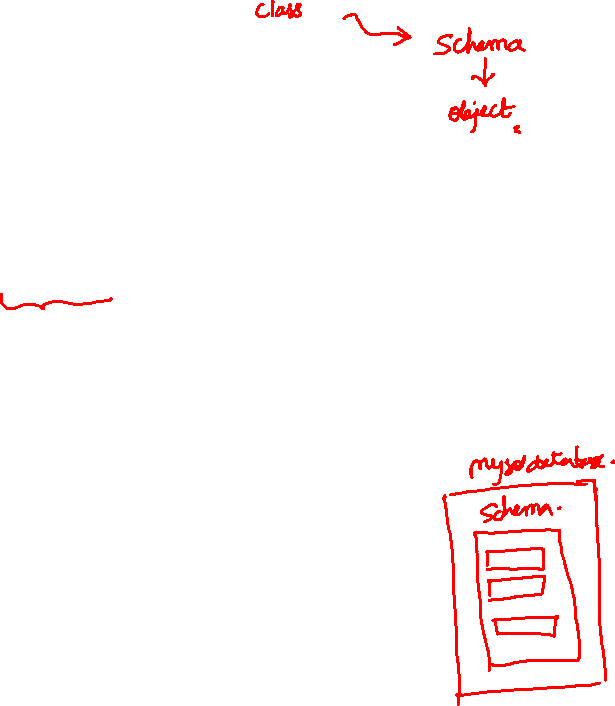 class
schema
object.
mysql database.
schema.